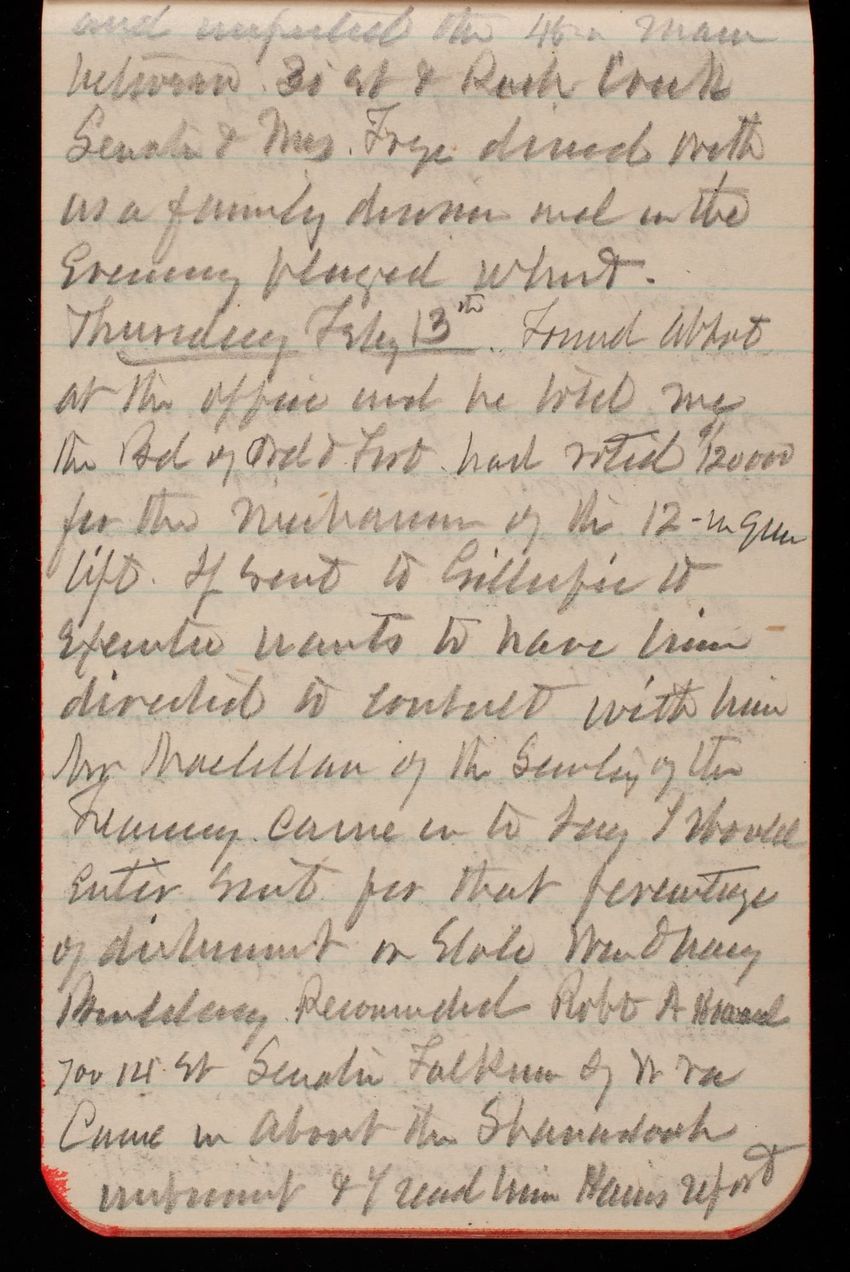 and inspected the 48in main
between 30 st & Rock Creek
Senator & Mrs. Frye dined with
us a family dinner and in the
Evening played whist.
Thursday Feby 13th. Found Abbot
at the office and he told me
the Bd of Ord & Fort had voted $12000
for the mechanism of the 12-in gun
lift. If sent to Gillespie to
Execute wants to have him
directed to consult with him
Mr of the Secty of the
Treasury came in to say I should
Enter for that percentage
of on State War & Navy
Building. Recomended Robt A
700 14 St Senator Falkner of W Va
Came in about the Shanadoah
& I read him Hains report